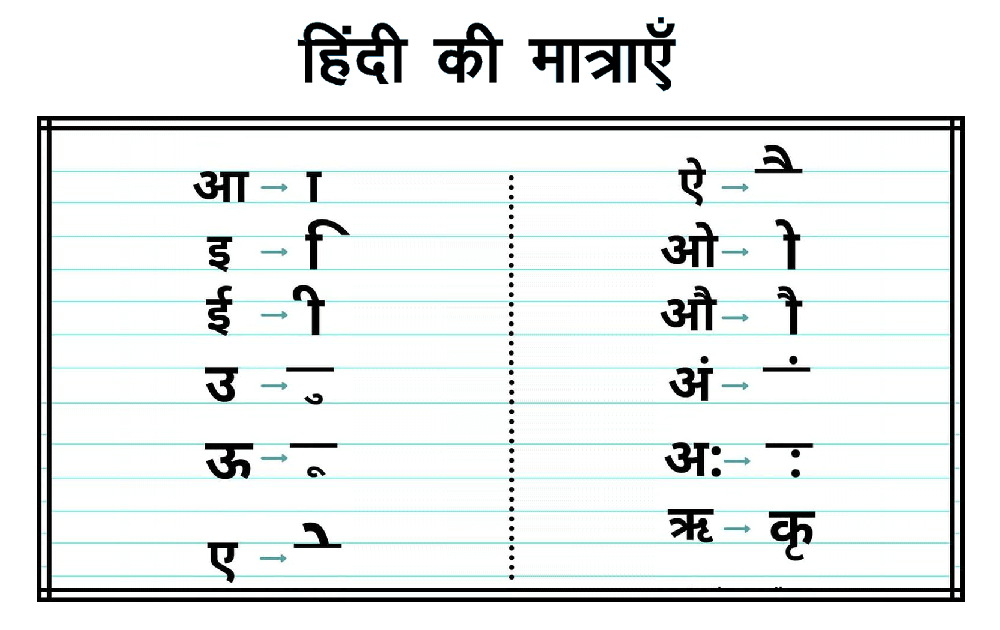 हिंदी की मात्राएँ
आ → ा
इ → ि
ई → ी
उ → ु
ऊ → ू
ए → े
ऐ → ै
ओ → ो
औ → ौ
अं → ं
अ: → ः
ऋ → कृ